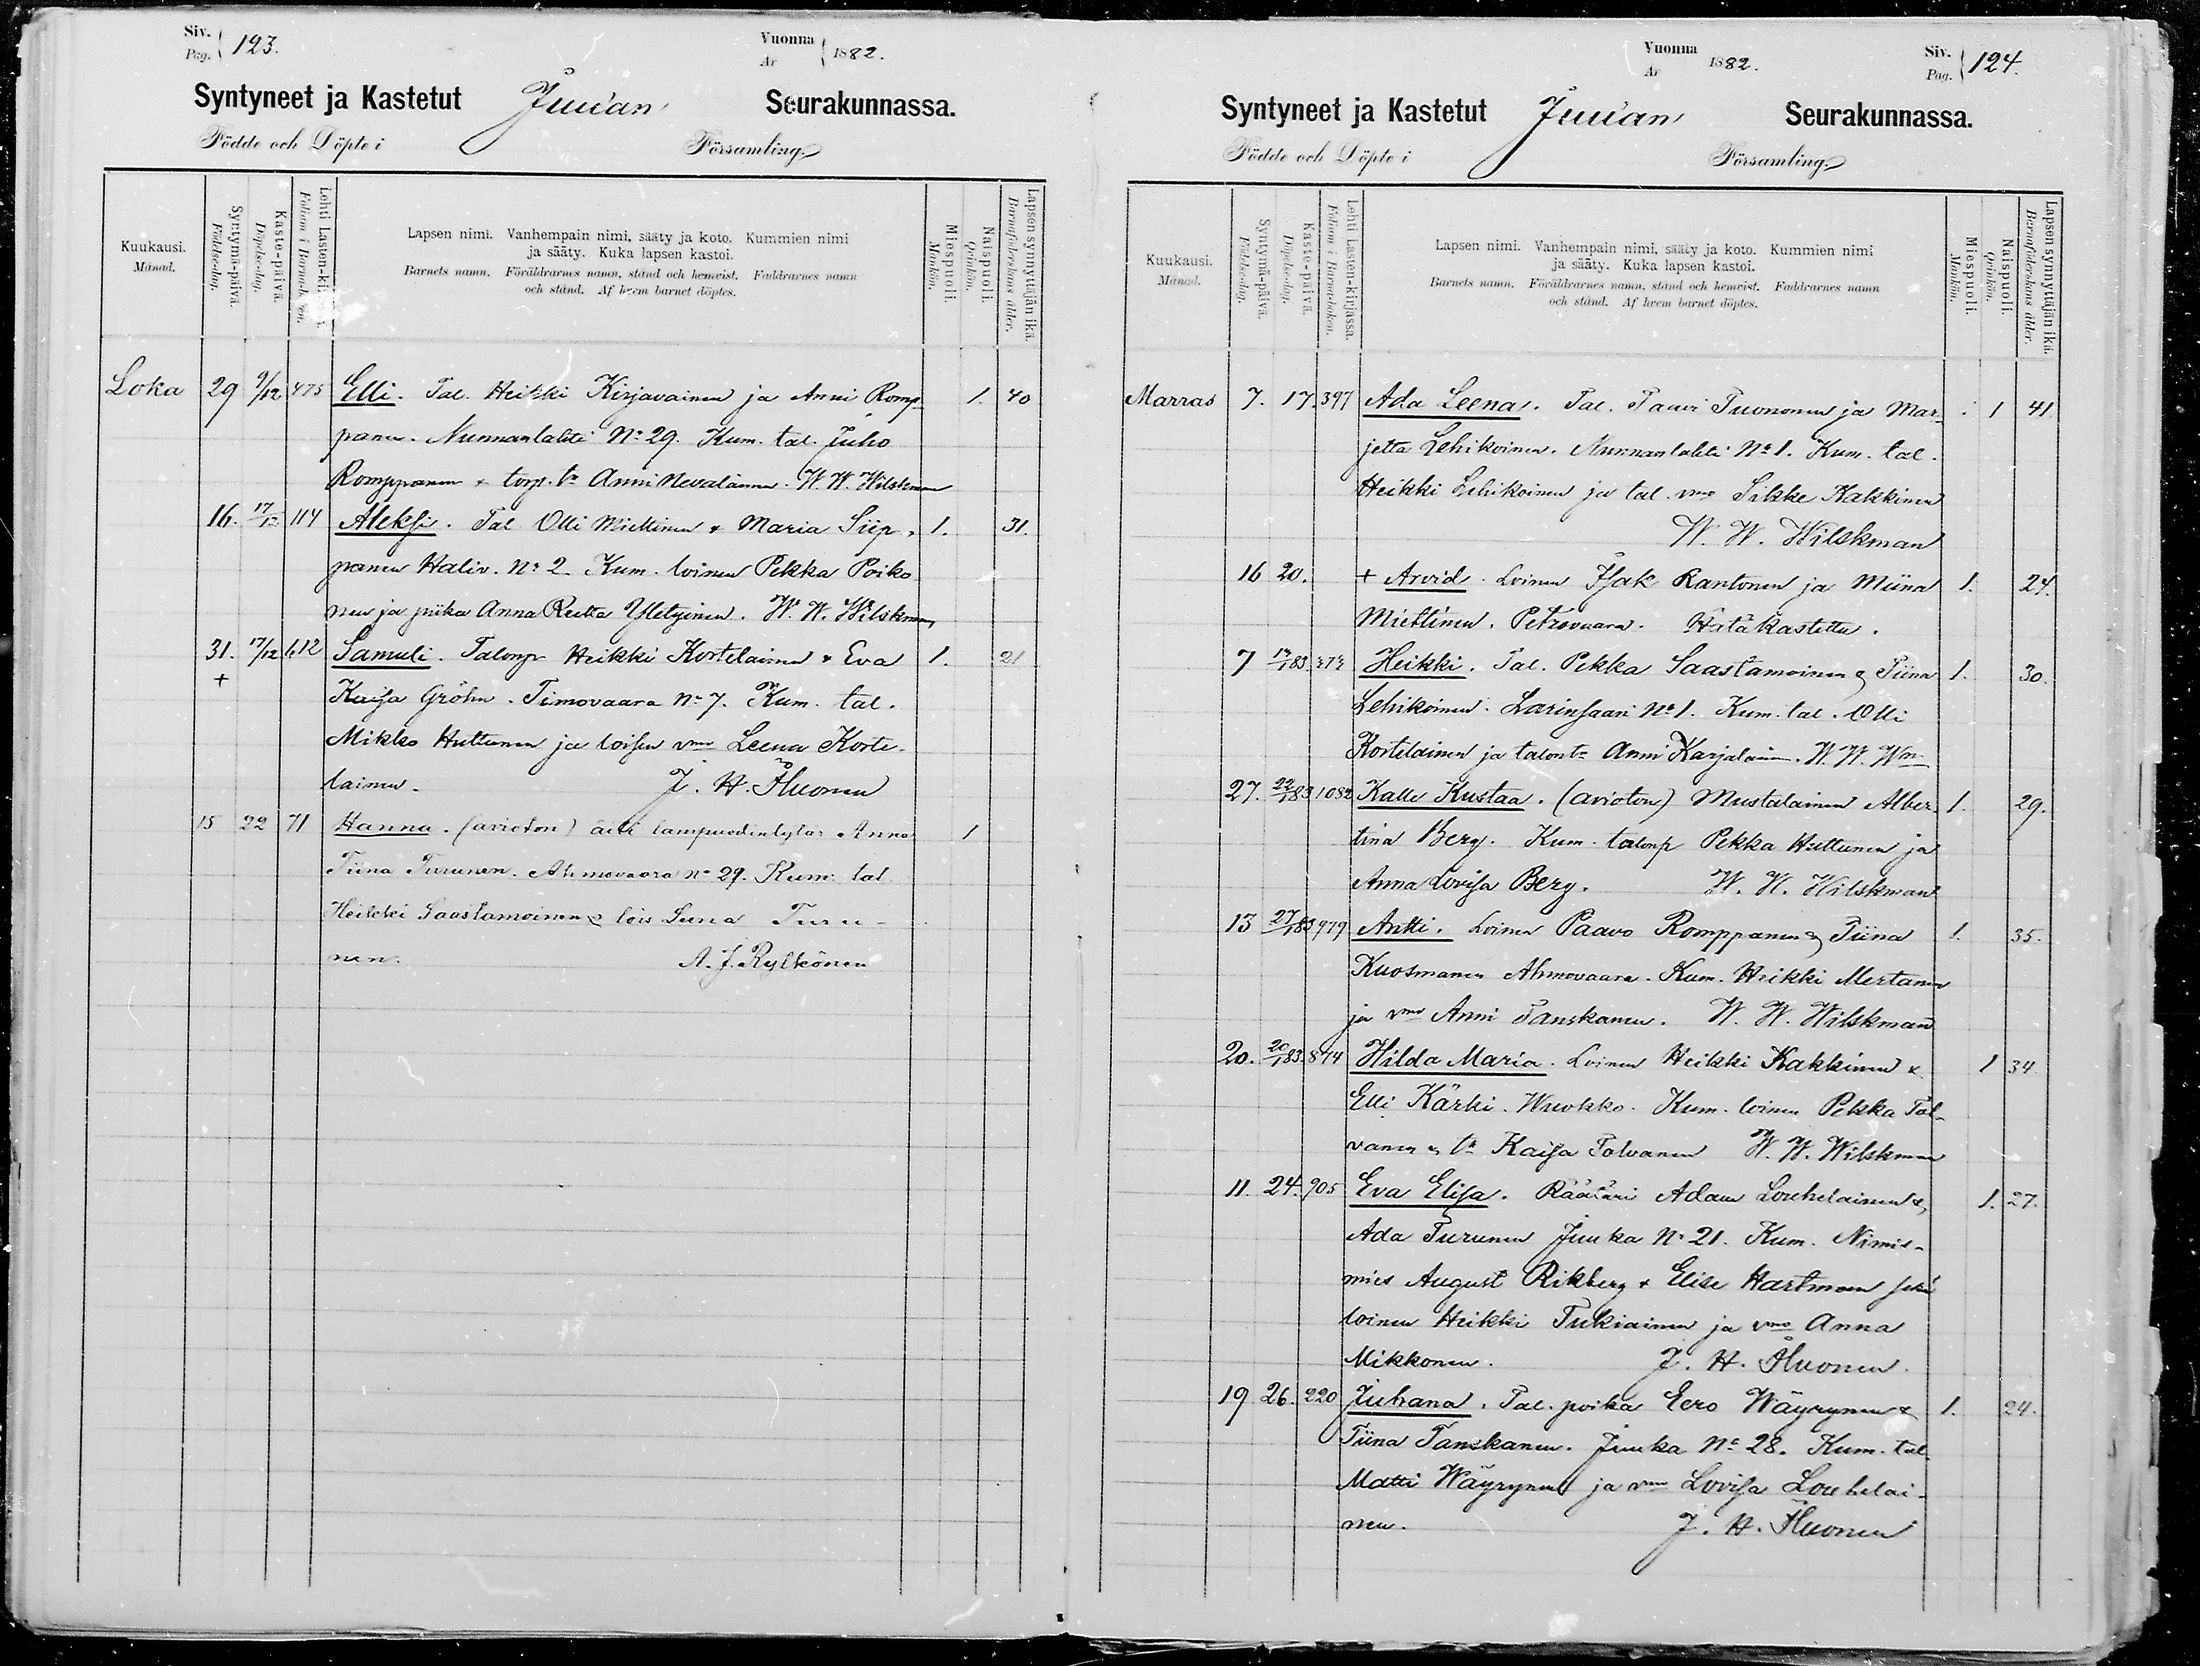 Siv. 123. Vuonna 1882.
Pag. År
Syntyneet ja Kastetut Juuan Seurakunnassa.
Födde och Döpte i Församling
Kuukausi. Månad.
Syntymä-päivä. Födelse-dag.
Kaste-päivä. Dopelse-dag.
Lehti Lasten-ki
Folium i Barna-b en.
Lapsen nimi. Vanhempain nimi, sääty ja koto. Kummien nimi
ja sääty. Kuka lapsen kastoi.
Barnets namn. Föräldrarnes namn, stånd och hemvist. Faddrarnes namn
och stånd. Af hvem barnet döptes.
Miespuoli. Mankön.
Naispuoli. Qvinkön.
Lapsen synnyttäjän ikä.
Barnaföderskans ålder.
Loka 29 9/12 475 Elli. Tal. Heikki Kirjavainen ja Anni Romp- 1. 40
panen. Nunnanlahti No 29. Kum. tal. Juho
Romppanen & torp. tr Anni Nevalainen. W. W. Wilskman
16. 17/12 114 Aleksi. Tal Olli Miettinen & Maria Siip- 1. 31.
panen Haliv. No 2. Kum. loinen Pekka Poiko
nen ja piika Anna Reetta Yletyinen. W. W. Wilskman
31. 17/12 612 Samuli. Talonp Heikki Kortelainen & Eva 1. 21
+ Kaisa Gröhn. Timovaara No 7. Kum. tal.
Mikko Huttunen ja loisen vmo Leena Korte-
lainen. J. H. Fluonen
15 22 71 Hanna. (avioton) äiti lampuodintytär Anna 1
Tiina Turunen. Ahmovaara no 29. Kum: tal
Heikki Saastamoinen & lois Leena Turu-
nen. A. J. Rytkönen
Vuonna 1882. Siv. 124.
År Pag.
Syntyneet ja Kastetut Juuan Seurakunnassa.
Födde och Döpte i Församling
Kuukausi. Månad.
Syntymä-päivä. Födelse-dag.
Kaste-päivä. Dopelse-dag.
Lehti Lasten-kirjassa.
Folium i Barna-boken.
Lapsen nimi. Vanhempain nimi, sääty ja koto. Kummien nimi
ja sääty. Kuka lapsen kastoi.
Barnets namn. Föräldrarnes namn, stånd och hemvist. Faddrarnes namn
och stånd. Af hvem barnet döptes.
Miespuoli. Mankön.
Naispuoli. Qvinkön.
Lapsen synnyttäjän ikä.
Barnaföderskans ålder.
Marras 7. 17. 397 Ada Leena. Tal. Taavi Tuononen ja Mar- 1 41
jetta Lehikoinen. Nunnanlahti No 1. Kum. tal.
Heikki Lehikoinen ja tal. vmo Sikke Kakkinen
W. W. Wilskman
16 20. + Arvid. Loinen Isak Rantonen ja Miina 1. 24.
Miettinen. Petrovaara. Hätäkastettu.
7 Heikki. Tal. Pekka Saastamoinen & Tiina 1. 30.
Lehikoinen. Larinsaari No 1. Kum. tal. Olli
Kortelainen ja talon tr Anni Karjalainen. W. W. Wn
27. 22/1 83 1082 Kalle Kustaa. (avioton) Mustalainen Alber- 1. 29.
tina Berg. Kum. talonp Pekka Huttunen ja
Anna Lovisa Berg. W. W. Wilskman
13 27/1 83 979 Antti. Loinen Paavo Romppanen & Tiina 1. 35.
Kuosmanen Ahmovaara. Kum. Heikki Mertanen
ja vmo Anni Tanskanen. W. W. Wilskman
20. 20/1 83. 874 Hilda Maria. Loinen Heikki Kakkinen & 1 34
Elli Kärki. Wuokko. Kum. loinen Pekka Tol-
vanen & tr Kaisa Tolvanen W. W. Wilskman
11. 24. 905 Eva Elisa. Räätäri Adam Louhelainen & 1. 27.
Ada Turunen Juuka No 21. Kum. Nimis-
mies August Rikberg & Elise Hartman sekä
loinen Heikki Tukiainen ja vmo Anna
Mikkonen. J. H. Fluonen.
19 26. 220 Juhana. Tal. poika Eero Wäyrynen & 1. 24.
Tiina Tanskanen. Juuka No 28. Kum. tal.
Matti Wäyrynen ja vmo Lovisa Louhelai-
nen. J. H. Fluonen